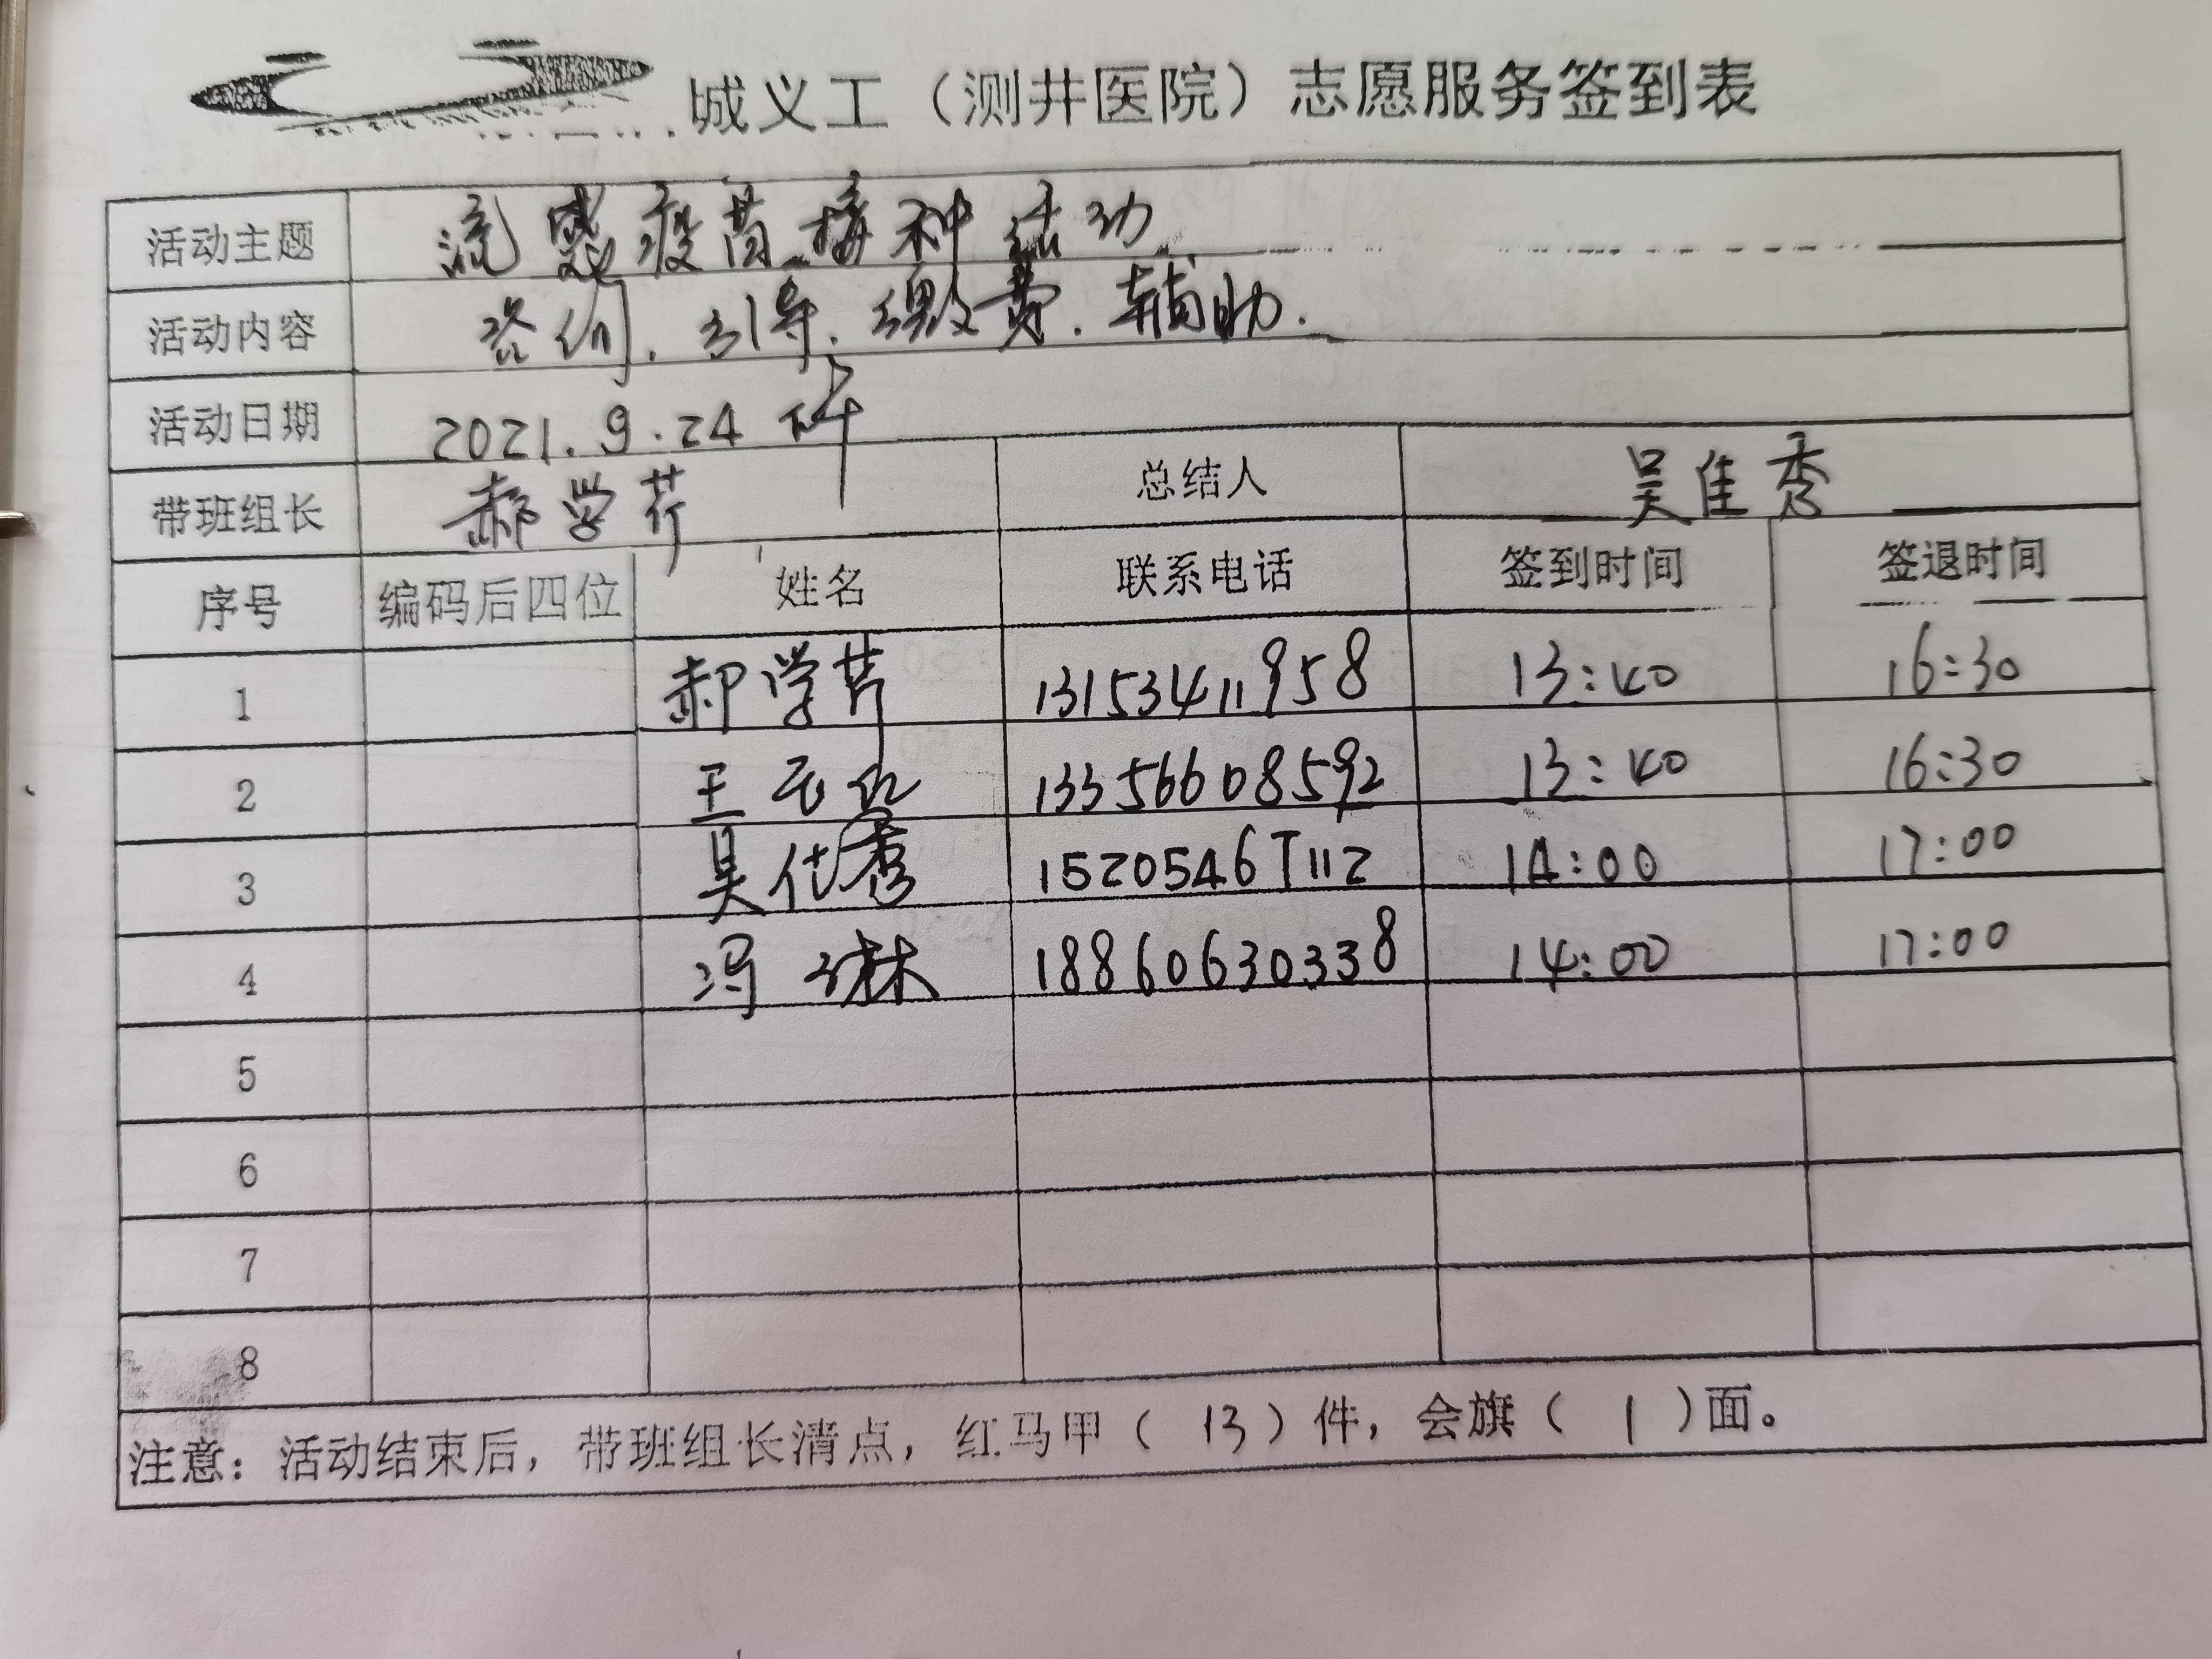 城义工（测井医院）志愿服务签到表
活动主题 流感疫苗接种活动
活动内容 咨询.引导.缴费.辅助.
活动日期 2021.9.24 下午
带班组长 郝学芹 总结人 吴佳秀
序号 编码后四位 姓名 联系电话 签到时间 签退时间
1 郝学芹 13153411958 13:40 16:30
2 王 13356608592 13:40 16:30
3 吴佳秀 15205467112 14:00 17:00
4 冯琳 18860630338 14:00 17:00
5
6
7
8
注意：活动结束后，带班组长清点，红马甲（ 13 ）件，会旗（ 1 ）面。